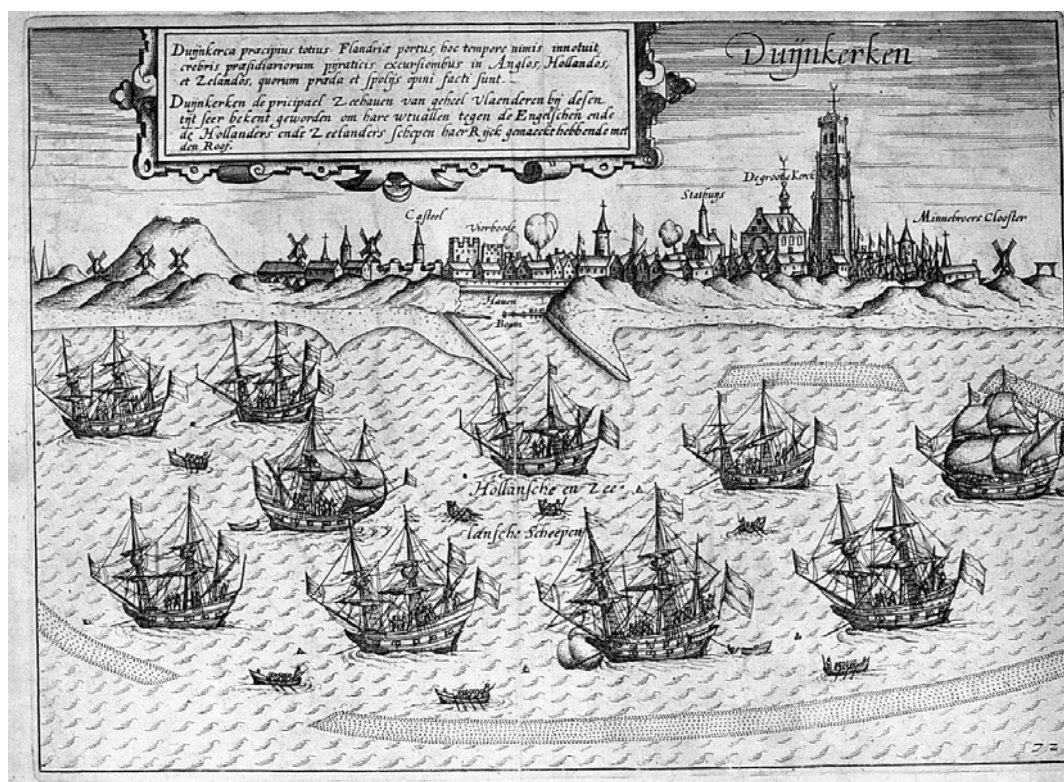 Duijnkerca præcipius totius Flandriæ portus, hoc tempore nimis innotuit
crebris præsidiariorum pijraticis excursionibus in Anglos, Hollandos,
et Zelandos, quorum præda et spolijs opini facti sunt.
Duijnkerken de pricipael Zeehauen van geheel Vlaenderen bij desen
tijt seer bekent geworden om hare wtuallen tegen de Engelschen ende
de Hollanders ende Zeelanders schepen haer Rijck gemaeckt hebbende met
den Roof.
Duijnkerken
Degroote Kerck
Stathuijs
Casteel
Vierboede
Minnebroers Clooster
Hauen
Boom
Hollansche en Zee
lansche Scheepen
172